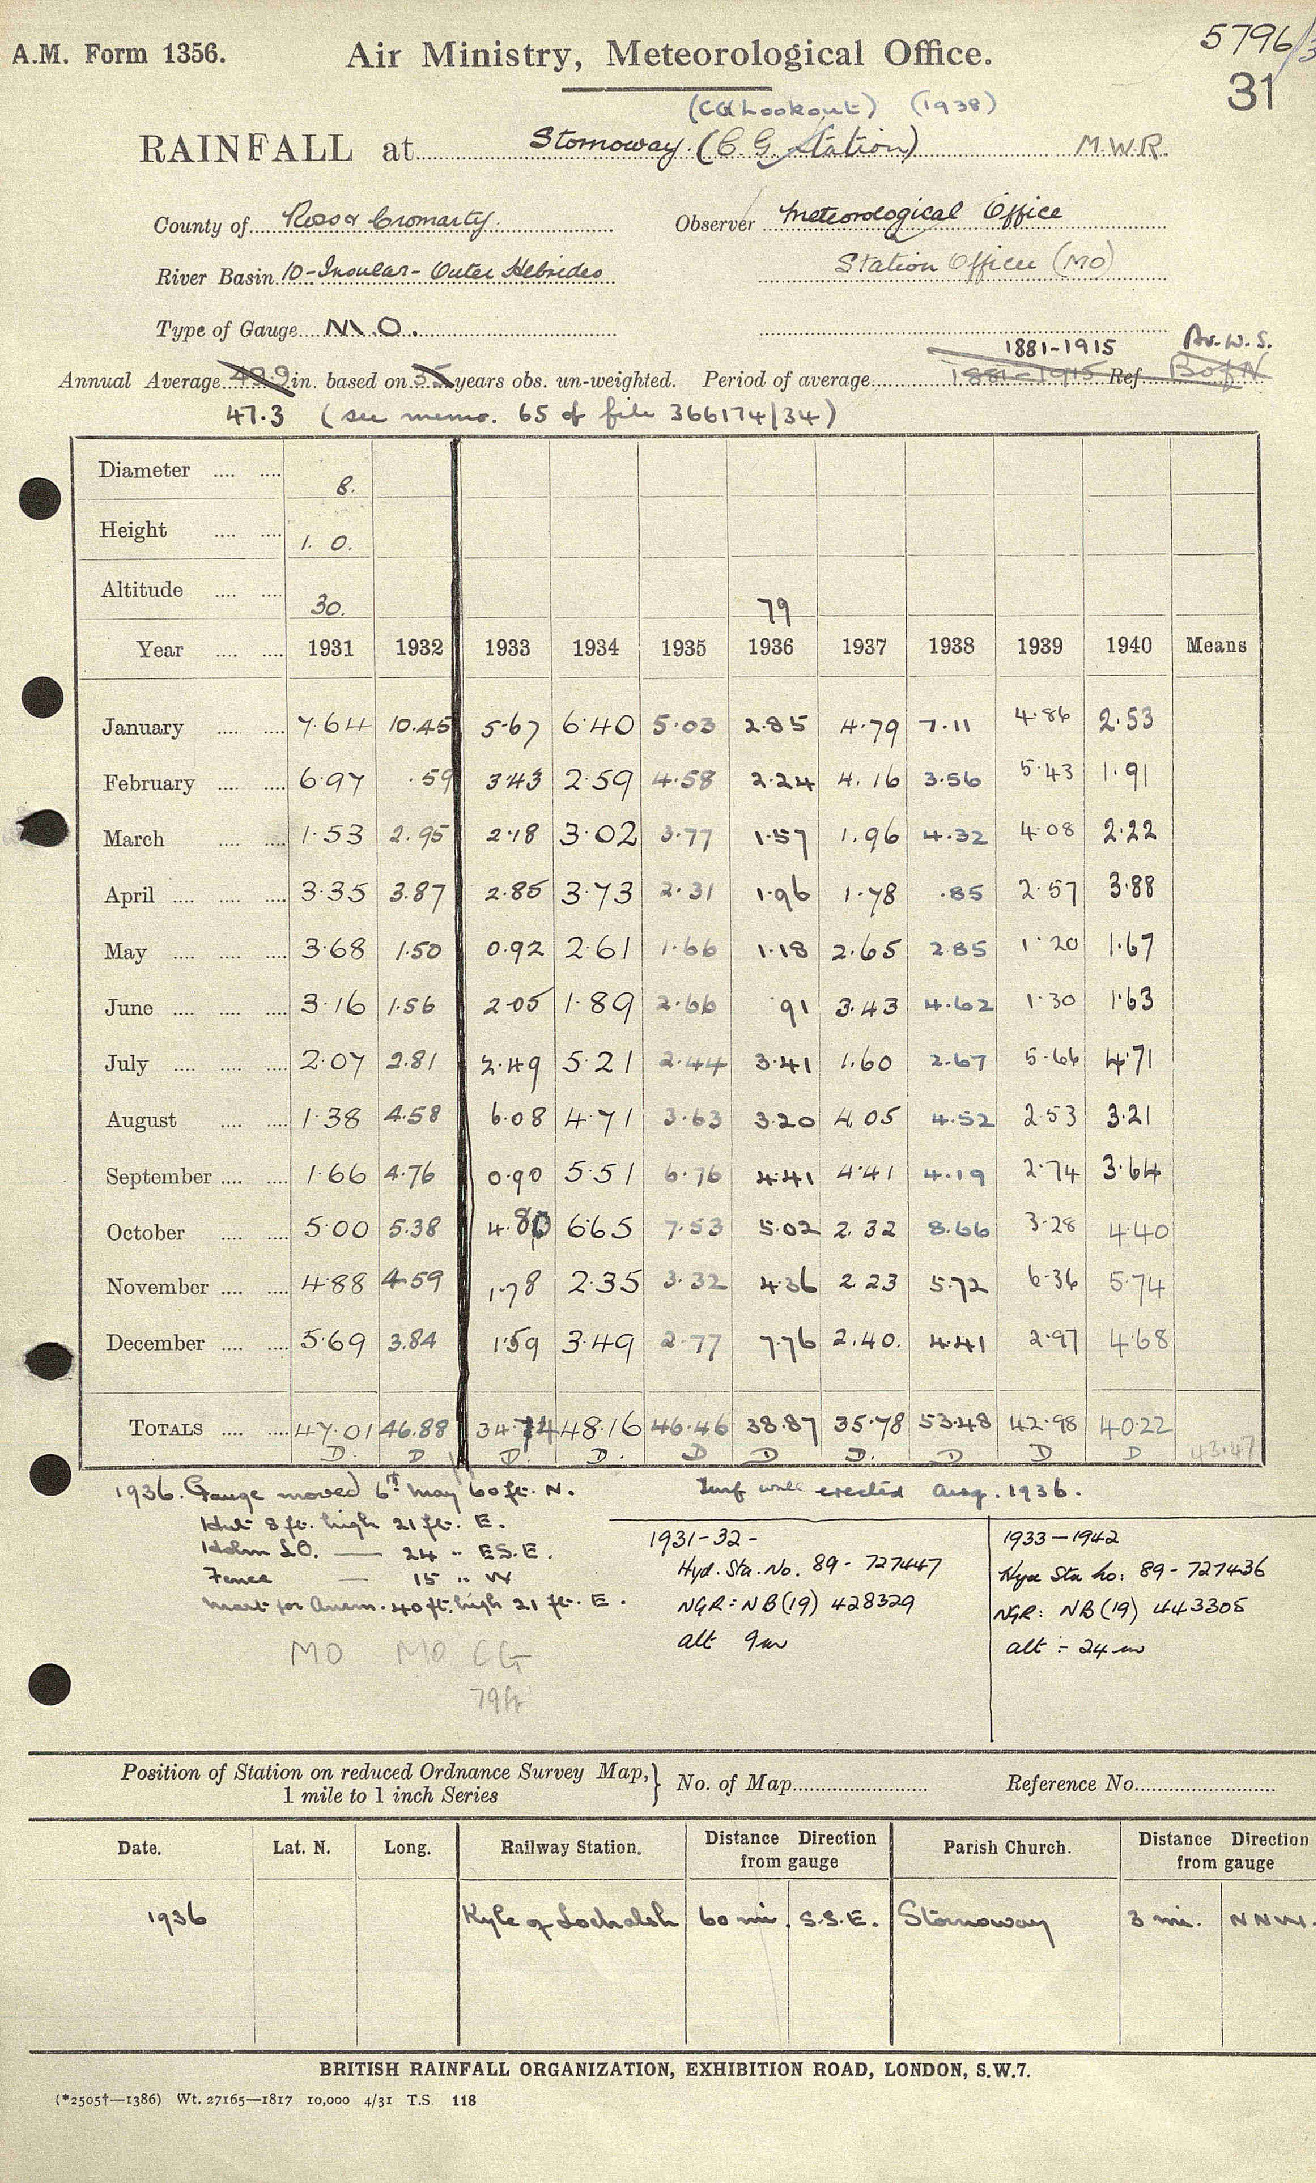 5796/3
A.M. Form 1356. Air Ministry, Meteorological Office. 31
(CG Lookout) (1938)
RAINFALL at Stornoway. (C.G. Station) M.W.R.
County of Ross & Cromarty. Observer Meteorological Office
River Basin 10-Insular-Outer Hebrides Station Officer (MO)
Type of Gauge M.O.
1881-1915 Av. W. S.
Annual Average 49.9 in. based on 35 years obs. un-weighted. Period of average 1881-1915 Ref. B of N
47.3 (see memo. 65 of file 366174/34)
Diameter 8.
Height 1. 0.
Altitude 30. 79
Year 1931 1932 1933 1934 1935 1936 1937 1938 1939 1940 Means
January 7.64 10.45 5.67 6.40 5.03 2.85 4.79 7.11 4.86 2.53
February 6.97 .59 3.43 2.59 4.58 2.24 4.16 3.56 5.43 1.91
March 1.53 2.95 2.18 3.02 3.77 1.57 1.96 4.32 4.08 2.22
April 3.35 3.87 2.85 3.73 2.31 1.96 1.78 .85 2.57 3.88
May 3.68 1.50 0.92 2.61 1.66 1.18 2.65 2.85 1.20 1.67
June 3.16 1.56 2.05 1.89 2.66 .91 3.43 4.62 1.30 1.63
July 2.07 2.81 2.49 5.21 2.44 3.41 1.60 2.67 5.66 4.71
August 1.38 4.58 6.08 4.71 3.63 3.20 4.05 4.52 2.53 3.21
September 1.66 4.76 0.90 5.51 6.76 4.41 4.41 4.19 2.74 3.64
October 5.00 5.38 4.80 6.65 7.53 5.02 2.32 8.66 3.28 4.40
November 4.88 4.59 1.78 2.35 3.32 4.36 2.23 5.72 6.36 5.74
December 5.69 3.84 1.59 3.49 2.77 7.76 2.40. 4.41 2.97 4.68
TOTALS 47.01 46.88 34.74 48.16 46.46 38.87 35.78 53.48 42.98 40.22 43.47
D. D D. D. D D D. D D D
1936. Gauge moved 6th May 60 ft. N. Turf wall erected Aug. 1936.
Hut 8 ft. high 21 ft. E.
Holm LO. — 24 " ESE.
Fence — 15 " W
Mast for Anem. 40 ft. high 21 ft. E.
1931-32-
Hyd. Sta. No. 89-727447
NGR: NB(19) 428329
alt 9m
1933-1942
Hyd Sta No: 89-727436
NGR: NB(19) 443305
alt :- 24m
MO MO CG
79ft
Position of Station on reduced Ordnance Survey Map, 1 mile to 1 inch Series } No. of Map Reference No.
Date. Lat. N. Long. Railway Station. Distance Direction from gauge Parish Church. Distance Direction from gauge
1936 Kyle of Lochalsh 60 mi. S.S.E. Stornoway 3 mi. NNW.
BRITISH RAINFALL ORGANIZATION, EXHIBITION ROAD, LONDON, S.W.7.
(*2505†—1386) Wt. 27165—1817 10,000 4/31 T.S. 118